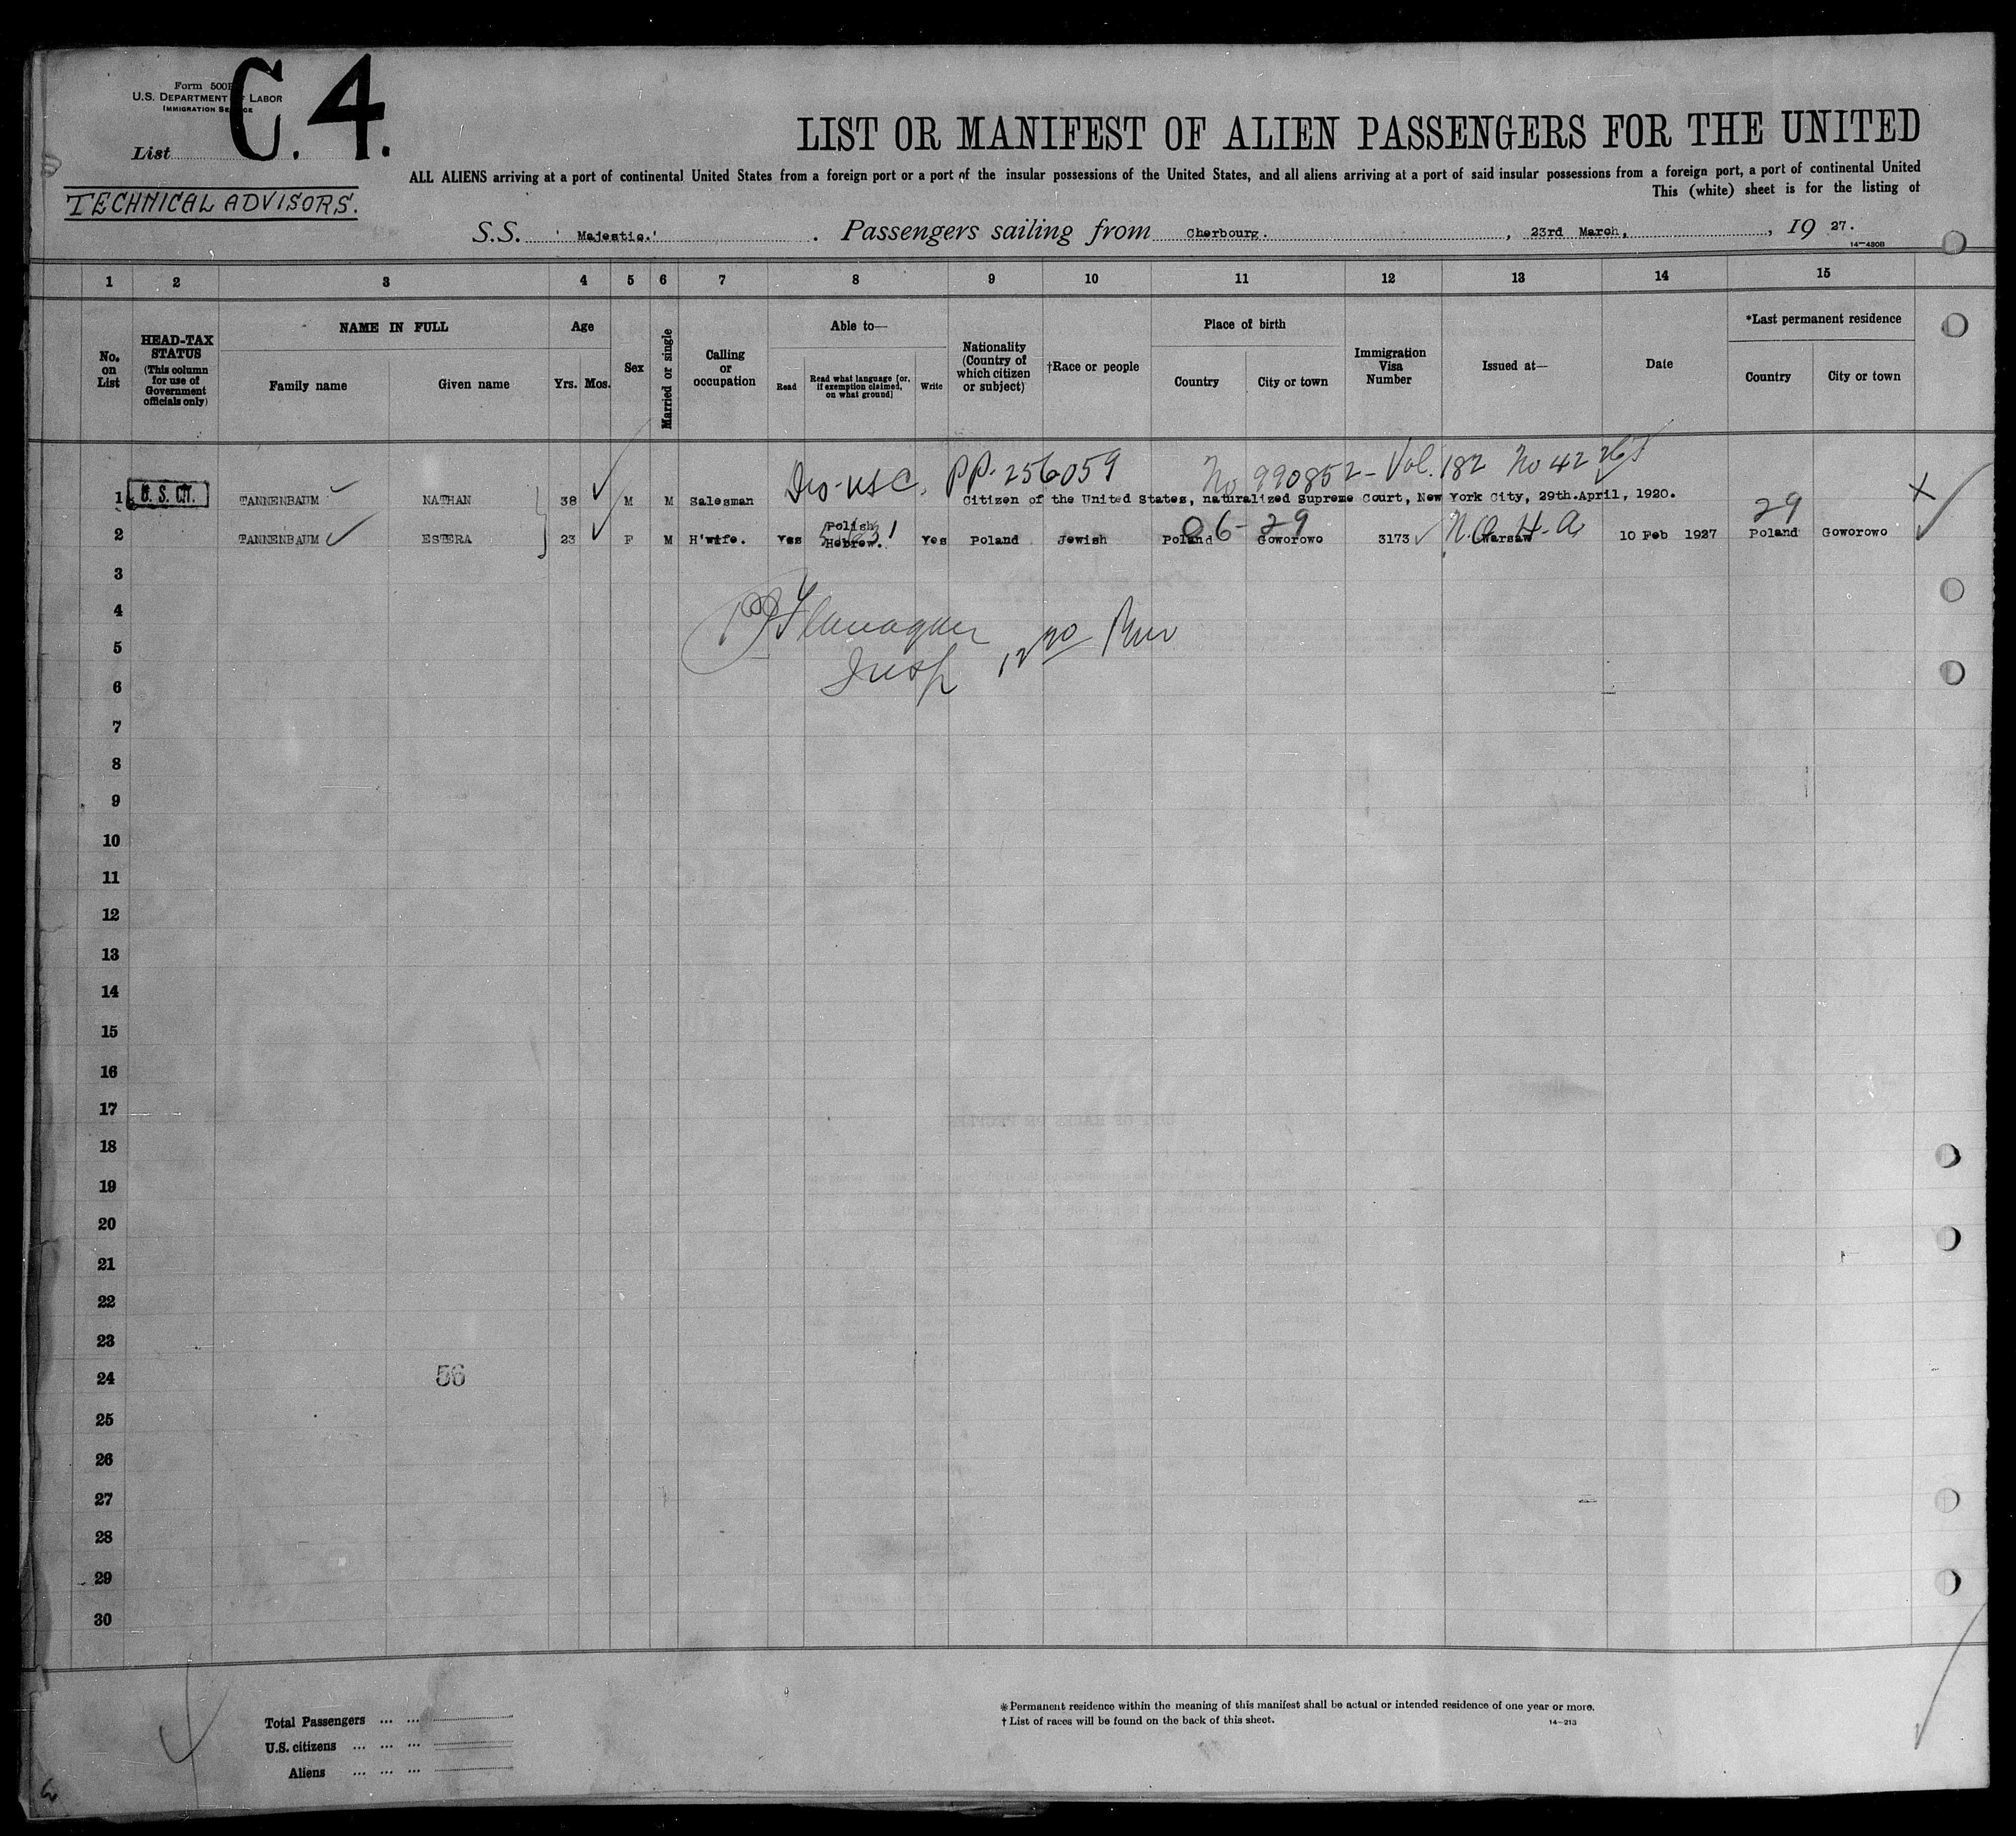 Form 500B
U.S. DEPARTMENT OF LABOR
IMMIGRATION SERVICE
C. 4.
List
LIST OR MANIFEST OF ALIEN PASSENGERS FOR THE UNITED
ALL ALIENS arriving at a port of continental United States from a foreign port or a port of the insular possessions of the United States, and all aliens arriving at a port of said insular possessions from a foreign port, a port of continental United
This (white) sheet is for the listing of
TECHNICAL ADVISORS.
S.S. 'Majestic.' Passengers sailing from Cherbourg. , 23rd March, , 19 27.
14—430B
1 2 3 4 5 6 7 8 9 10 11 12 13 14 15
No. on List
HEAD-TAX STATUS (This column for use of Government officials only)
NAME IN FULL
Family name Given name
Age
Yrs. Mos.
Sex
Married or single
Calling or occupation
Able to—
Read
Read what language [or, if exemption claimed, on what ground]
Write
Nationality (Country of which citizen or subject)
†Race or people
Place of birth
Country City or town
Immigration Visa Number
Issued at—
Date
*Last permanent residence
Country City or town
PP. 256059 No 990852 - Vol. 182 No 42
1 U. S. CIT. TANNENBAUM NATHAN 38 M M Salesman Citizen of the United States, naturalized Supreme Court, New York City, 29th.April, 1920.
29
06-29
2 TANNENBAUM ESTERA 23 F M H'wife. Yes Polish Hebrew. Yes Poland Jewish Poland Goworowo 3173 Warsaw 10 Feb 1927 Poland Goworowo
3
4
Flanagan
5
Insp
6
7
8
9
10
11
12
13
14
15
16
17
18
19
20
21
22
23
24 56
25
26
27
28
29
30
Total Passengers ... ...
U.S. citizens ... ... ...
Aliens ... ... ...
*Permanent residence within the meaning of this manifest shall be actual or intended residence of one year or more.
† List of races will be found on the back of this sheet.
14—213